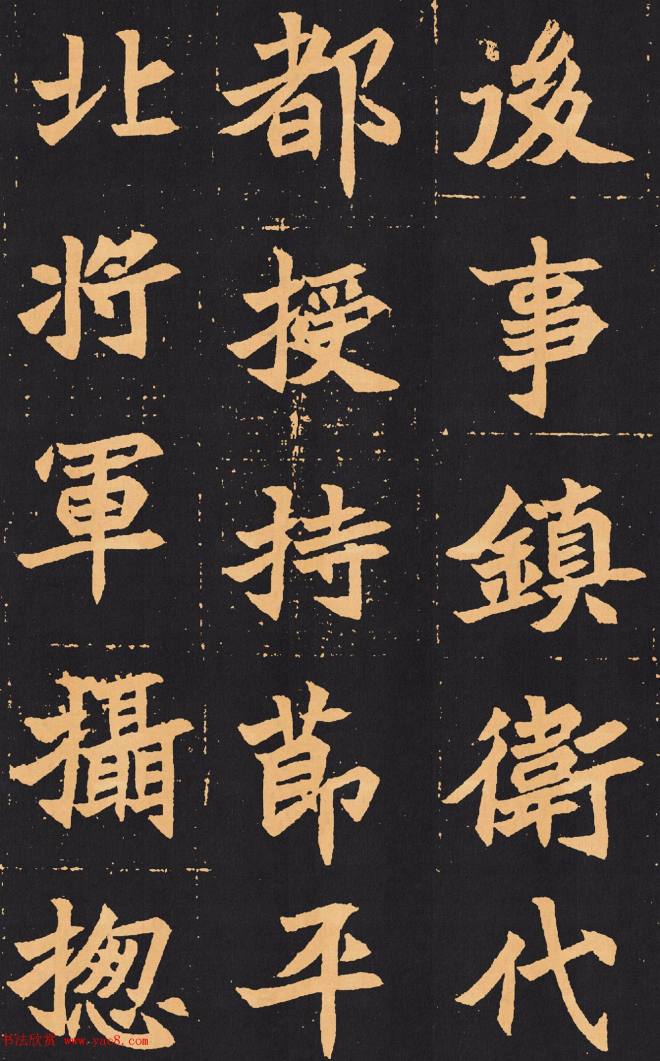 後事鎮衛代
都授持莭平
北將軍攝揔
书法欣赏 www.yac8.com